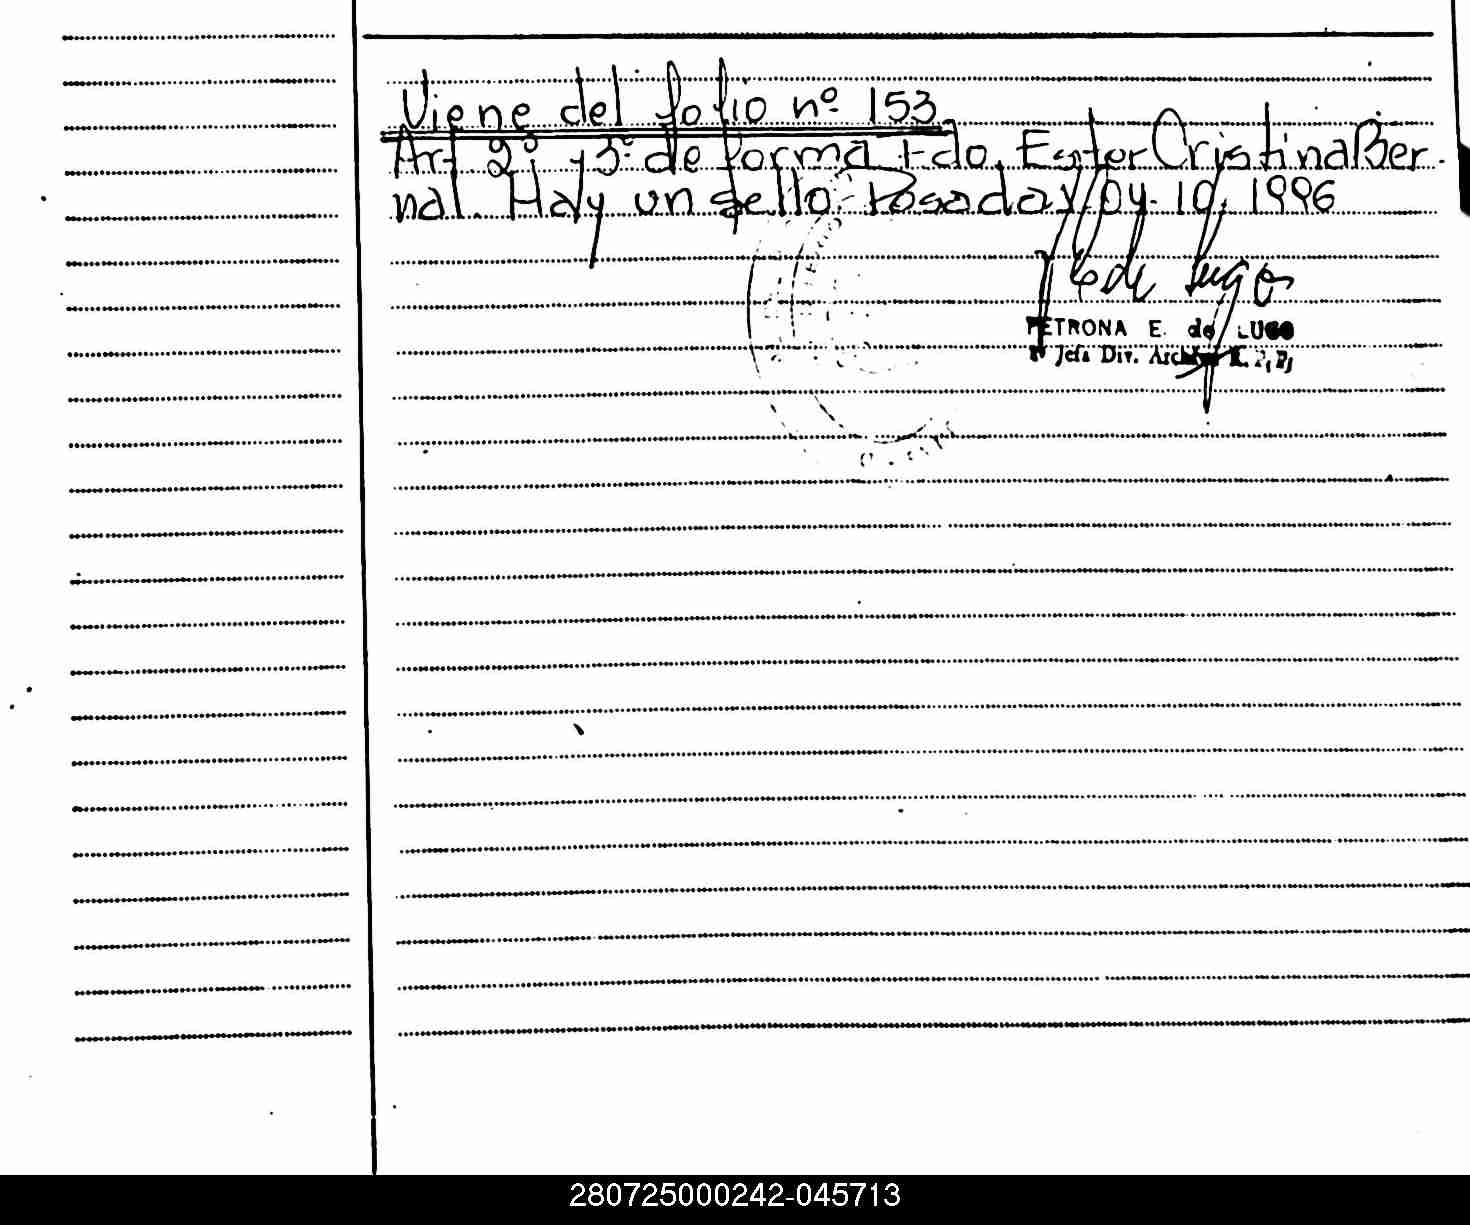 Viene del folio nº 153.
Art. 2º y 3º de forma Fdo. Ester Cristina Ber-
nal. Hay un sello Posadas, 04-10-1996
PETRONA E. de LUGO
Jefa Div. Archivo R. P. P.
280725000242-045713